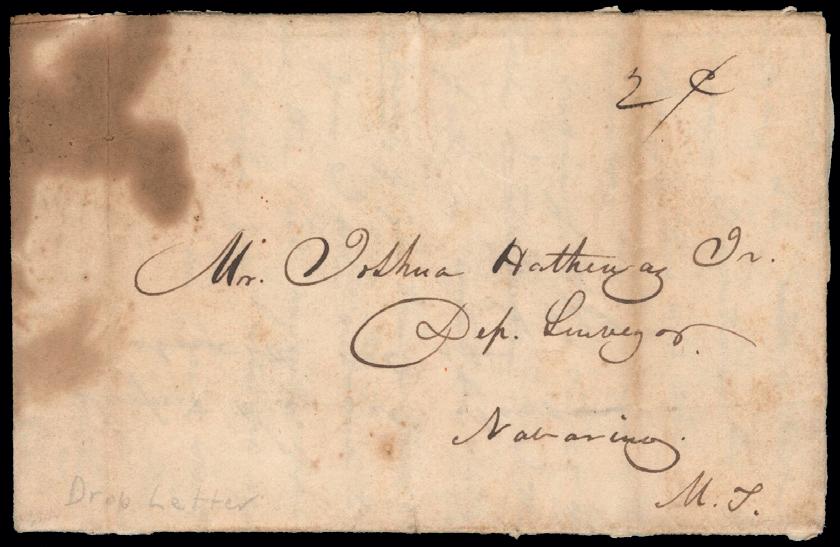 2 ¢
Mr. Joshua Hatheway Jr.
Dep. Surveyor.
Navarino.
M. T.
Drop Letter